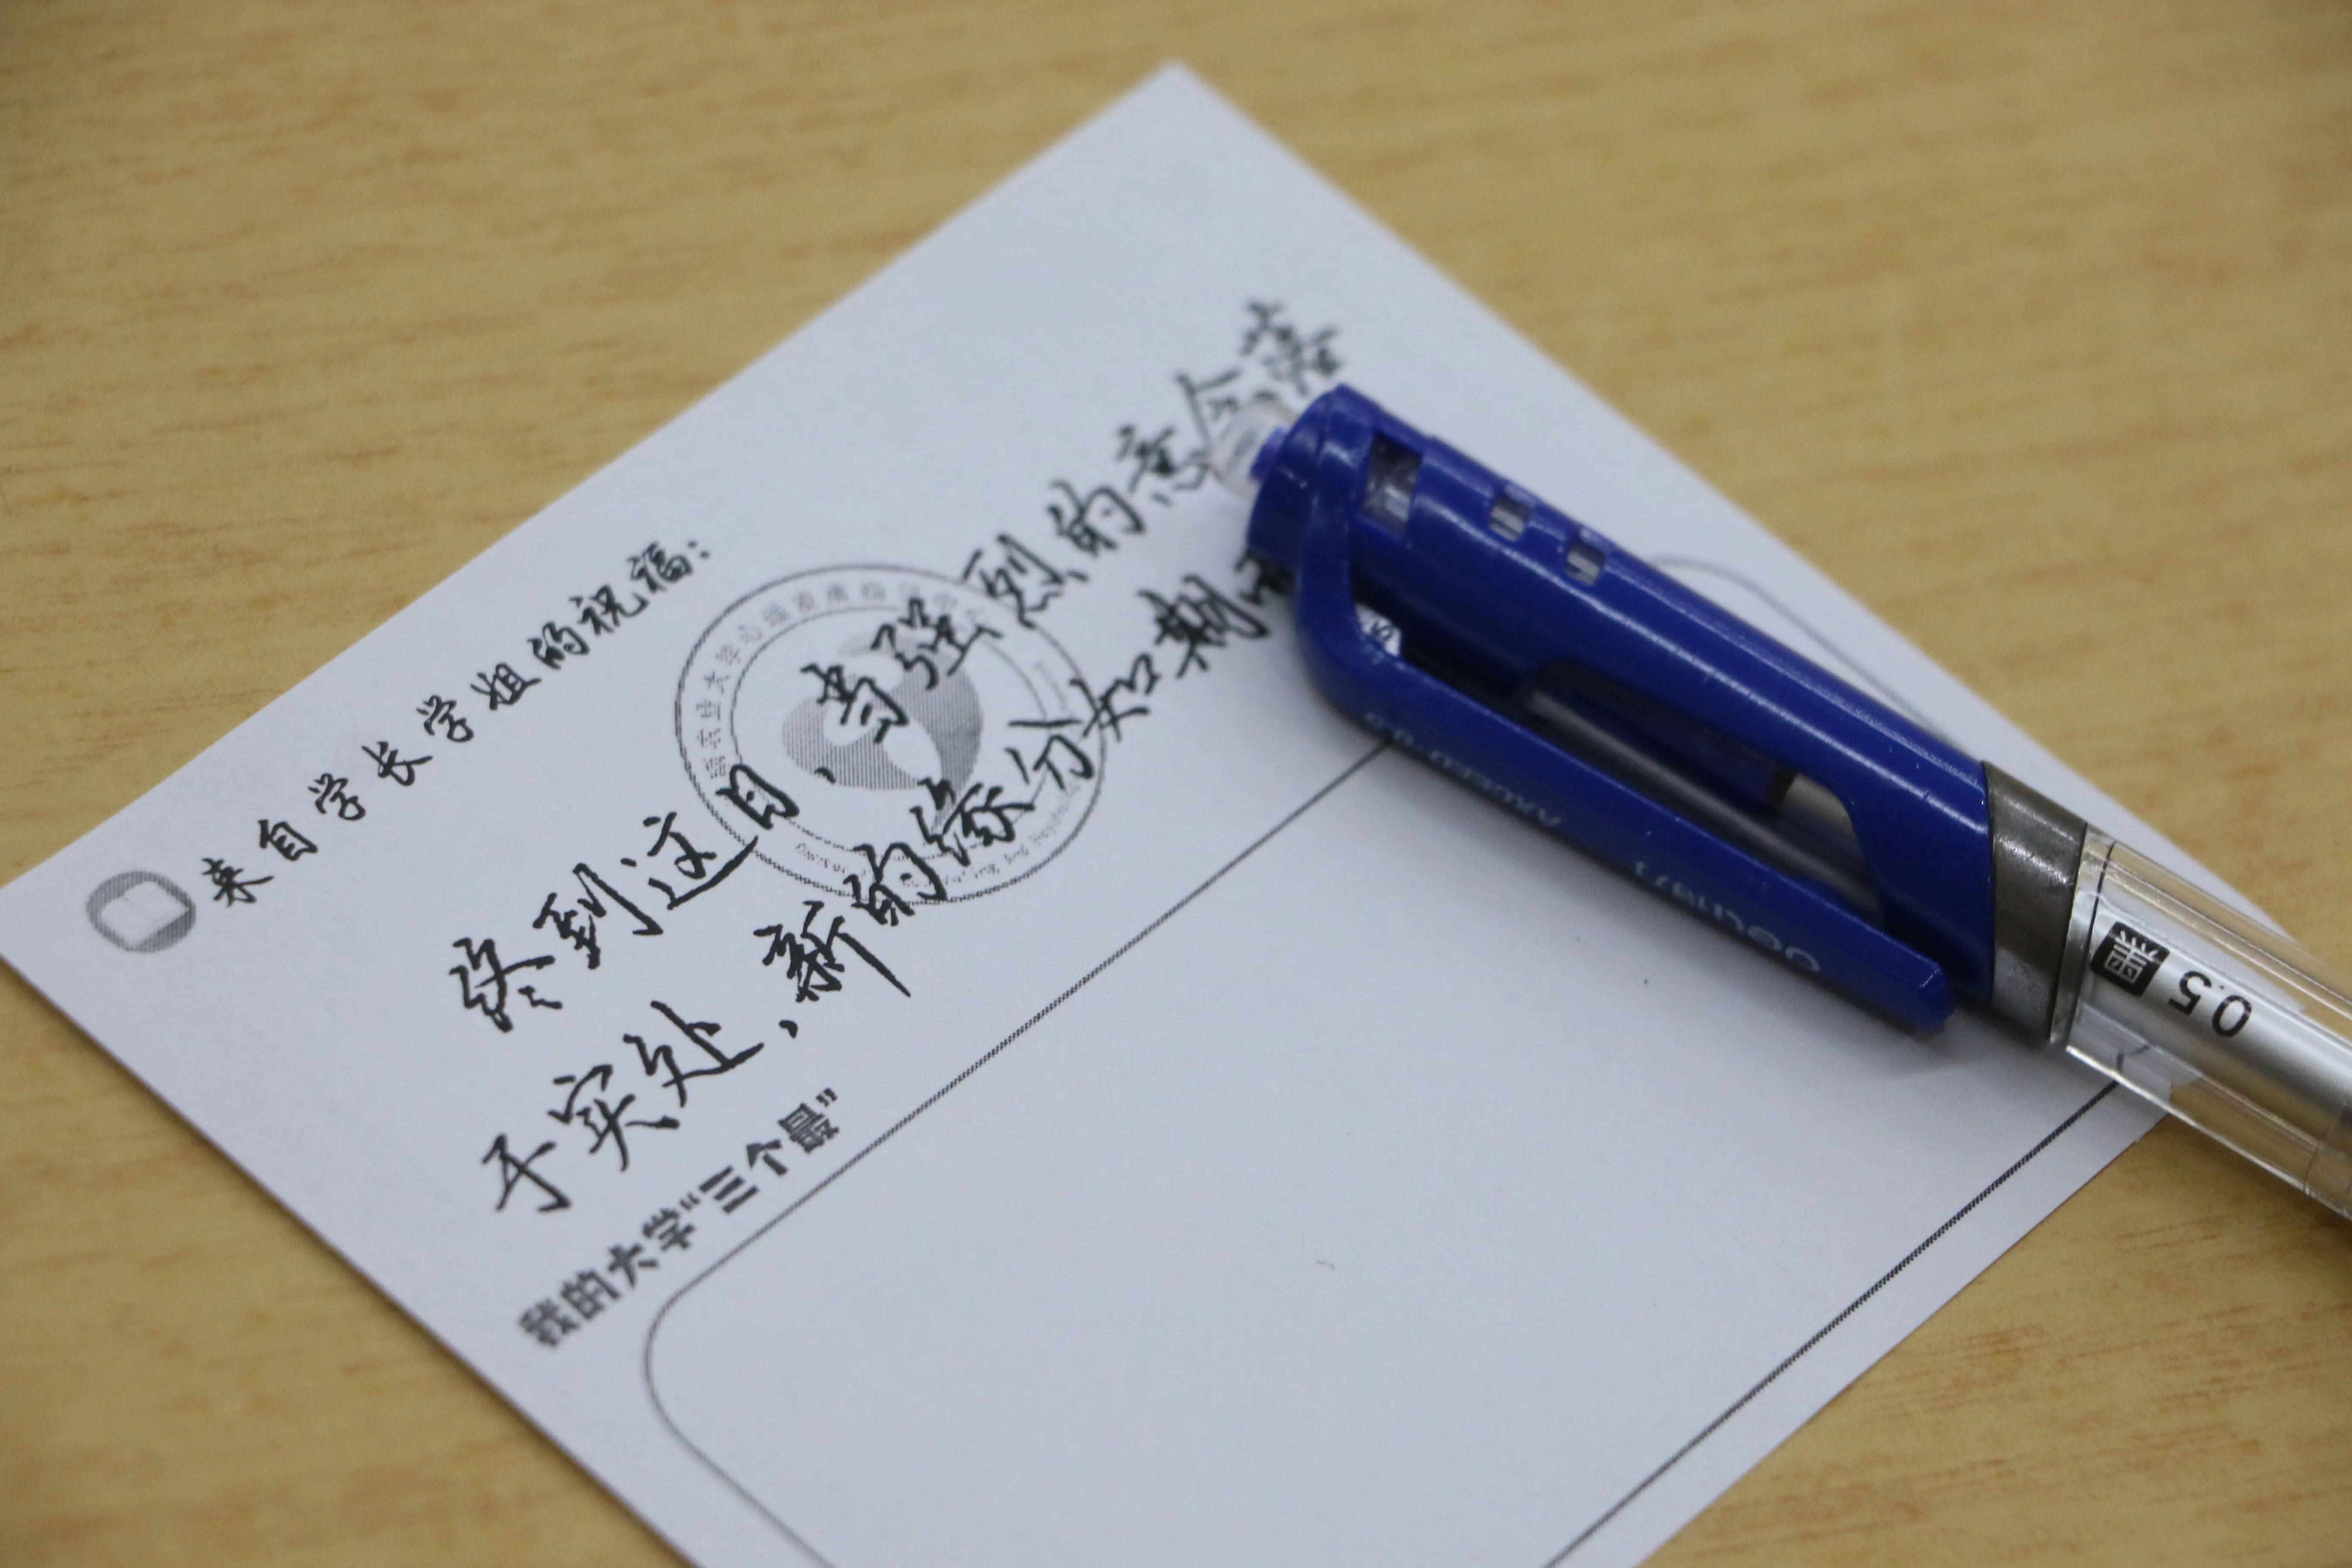 来自学长学姐的祝福:
终到这日，当强烈的意念落
于实处，新的缘分如期而
我的大学“三个最”
黑 0.5
deli